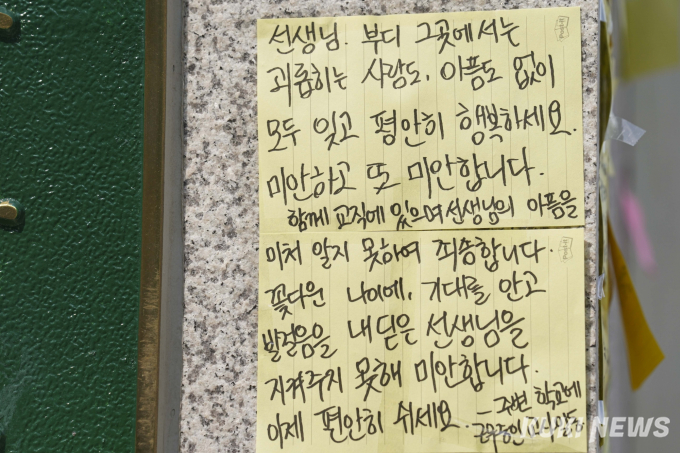 선생님. 부디 그곳에서는
괴롭히는 사람도, 아픔도 없이
모두 잊고 평안히 행복하세요.
미안하고 또 미안합니다.
함께 교직에 있으며 선생님의 아픔을
미처 알지 못하여 죄송합니다.
꽃다운 나이에, 기대를 안고
발걸음을 내딛은 선생님을
지켜주지 못해 미안합니다.
이제 편안히 쉬세요
- 주변 학교에
근무중인 교사일동
NEWS